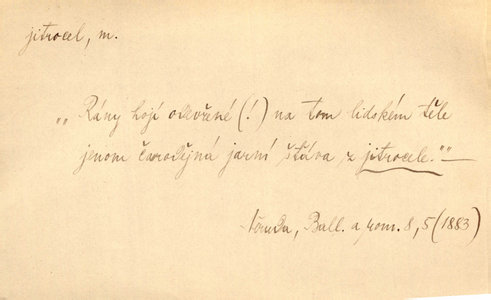 jitrocel, m.
„Rány hojí otevřené (!) na tom lidském těle
jenom čarodějná jarní šťáva z jitrocele."—
Ball. a rom. 8, 5 (1883)